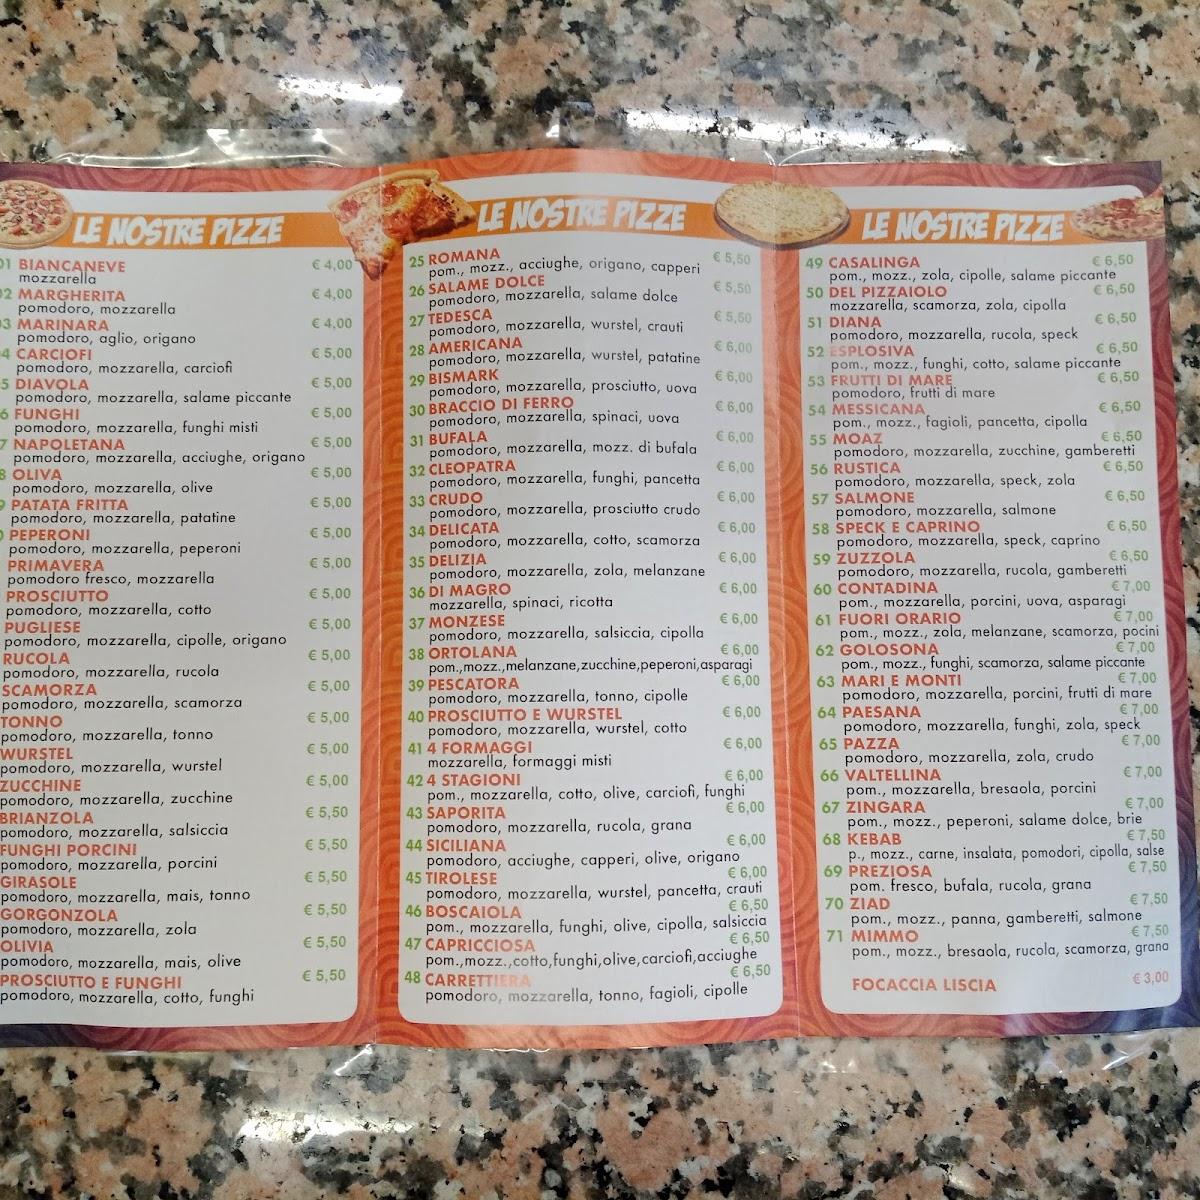 LE NOSTRE PIZZE
01 BIANCANEVE € 4,00
mozzarella
02 MARGHERITA € 4,00
pomodoro, mozzarella
03 MARINARA € 4,00
pomodoro, aglio, origano
04 CARCIOFI € 5,00
pomodoro, mozzarella, carciofi
5 DIAVOLA € 5,00
pomodoro, mozzarella, salame piccante
6 FUNGHI € 5,00
pomodoro, mozzarella, funghi misti
7 NAPOLETANA € 5,00
pomodoro, mozzarella, acciughe, origano
8 OLIVA € 5,00
pomodoro, mozzarella, olive
9 PATATA FRITTA € 5,00
pomodoro, mozzarella, patatine
PEPERONI € 5,00
pomodoro, mozzarella, peperoni
PRIMAVERA € 5,00
pomodoro fresco, mozzarella
PROSCIUTTO € 5,00
pomodoro, mozzarella, cotto
PUGLIESE € 5,00
pomodoro, mozzarella, cipolle, origano
RUCOLA € 5,00
pomodoro, mozzarella, rucola
SCAMORZA € 5,00
pomodoro, mozzarella, scamorza
TONNO € 5,00
pomodoro, mozzarella, tonno
WURSTEL € 5,00
pomodoro, mozzarella, wurstel
ZUCCHINE € 5,00
pomodoro, mozzarella, zucchine
BRIANZOLA € 5,50
pomodoro, mozzarella, salsiccia
FUNGHI PORCINI € 5,50
pomodoro, mozzarella, porcini
GIRASOLE € 5,50
pomodoro, mozzarella, mais, tonno
GORGONZOLA € 5,50
pomodoro, mozzarella, zola
OLIVIA € 5,50
pomodoro, mozzarella, mais, olive
PROSCIUTTO E FUNGHI € 5,50
pomodoro, mozzarella, cotto, funghi
LE NOSTRE PIZZE
25 ROMANA € 5,50
pom., mozz., acciughe, origano, capperi
26 SALAME DOLCE € 5,50
pomodoro, mozzarella, salame dolce
27 TEDESCA € 5,50
pomodoro, mozzarella, wurstel, crauti
28 AMERICANA € 6,00
pomodoro, mozzarella, wurstel, patatine
29 BISMARK € 6,00
pomodoro, mozzarella, prosciutto, uova
30 BRACCIO DI FERRO € 6,00
pomodoro, mozzarella, spinaci, uova
31 BUFALA € 6,00
pomodoro, mozzarella, mozz. di bufala
32 CLEOPATRA € 6,00
pomodoro, mozzarella, funghi, pancetta
33 CRUDO € 6,00
pomodoro, mozzarella, prosciutto crudo
34 DELICATA € 6,00
pomodoro, mozzarella, cotto, scamorza
35 DELIZIA € 6,00
pomodoro, mozzarella, zola, melanzane
36 DI MAGRO € 6,00
mozzarella, spinaci, ricotta
37 MONZESE € 6,00
pomodoro, mozzarella, salsiccia, cipolla
38 ORTOLANA € 6,00
pom.,mozz.,melanzane,zucchine,peperoni,asparagi
39 PESCATORA € 6,00
pomodoro, mozzarella, tonno, cipolle
40 PROSCIUTTO E WURSTEL € 6,00
pomodoro, mozzarella, wurstel, cotto
41 4 FORMAGGI € 6,00
mozzarella, formaggi misti
42 4 STAGIONI € 6,00
pom., mozzarella, cotto, olive, carciofi, funghi
43 SAPORITA € 6,00
pomodoro, mozzarella, rucola, grana
44 SICILIANA € 6,00
pomodoro, acciughe, capperi, olive, origano
45 TIROLESE € 6,00
pomodoro, mozzarella, wurstel, pancetta, crauti
46 BOSCAIOLA € 6,50
pom., mozzarella, funghi, olive, cipolla, salsiccia
47 CAPRICCIOSA € 6,50
pom.,mozz.,cotto,funghi,olive,carciofi,acciughe
48 CARRETTIERA € 6,50
pomodoro, mozzarella, tonno, fagioli, cipolle
LE NOSTRE PIZZE
49 CASALINGA € 6,50
pom., mozz., zola, cipolle, salame piccante
50 DEL PIZZAIOLO € 6,50
mozzarella, scamorza, zola, cipolla
51 DIANA € 6,50
pomodoro, mozzarella, rucola, speck
52 ESPLOSIVA € 6,50
pom., mozz., funghi, cotto, salame piccante
53 FRUTTI DI MARE € 6,50
pomodoro, frutti di mare
54 MESSICANA € 6,50
pom., mozz., fagioli, pancetta, cipolla
55 MOAZ € 6,50
pomodoro, mozzarella, zucchine, gamberetti
56 RUSTICA € 6,50
pomodoro, mozzarella, speck, zola
57 SALMONE € 6,50
pomodoro, mozzarella, salmone
58 SPECK E CAPRINO € 6,50
pomodoro, mozzarella, speck, caprino
59 ZUZZOLA € 6,50
pomodoro, mozzarella, rucola, gamberetti
60 CONTADINA € 7,00
pom., mozzarella, porcini, uova, asparagi
61 FUORI ORARIO € 7,00
pom., mozz., zola, melanzane, scamorza, pocini
62 GOLOSONA € 7,00
pom., mozz., funghi, scamorza, salame piccante
63 MARI E MONTI € 7,00
pomodoro, mozzarella, porcini, frutti di mare
64 PAESANA € 7,00
pomodoro, mozzarella, funghi, zola, speck
65 PAZZA € 7,00
pomodoro, mozzarella, zola, crudo
66 VALTELLINA € 7,00
pom., mozzarella, bresaola, porcini
67 ZINGARA € 7,00
pom., mozz., peperoni, salame dolce, brie
68 KEBAB € 7,50
p., mozz., carne, insalata, pomodori, cipolla, salse
69 PREZIOSA € 7,50
pom. fresco, bufala, rucola, grana
70 ZIAD € 7,50
pom., mozz., panna, gamberetti, salmone
71 MIMMO € 7,50
pom., mozz., bresaola, rucola, scamorza, grana
FOCACCIA LISCIA € 3,00